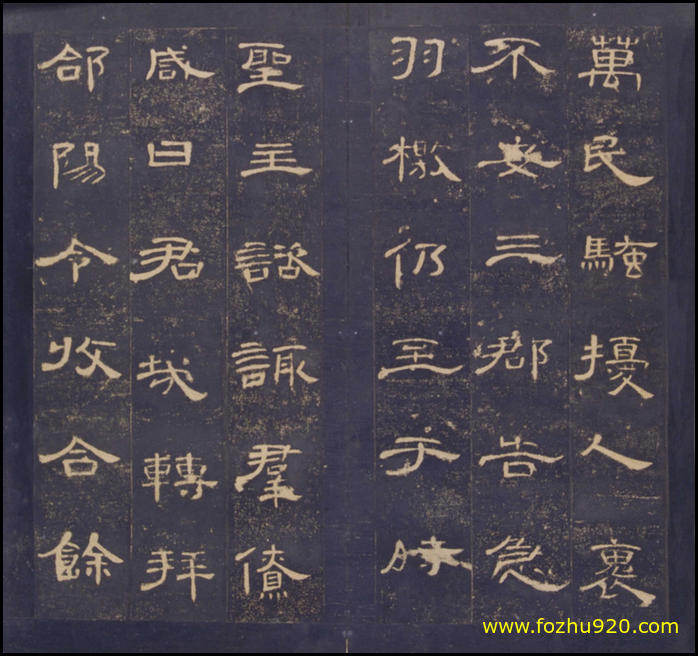 萬民騷擾人褱
不安三郡告急
羽檄仍至于時
聖主諮諏羣僚
咸曰君哉轉拜
郃陽令收合餘
www.fozhu920.com